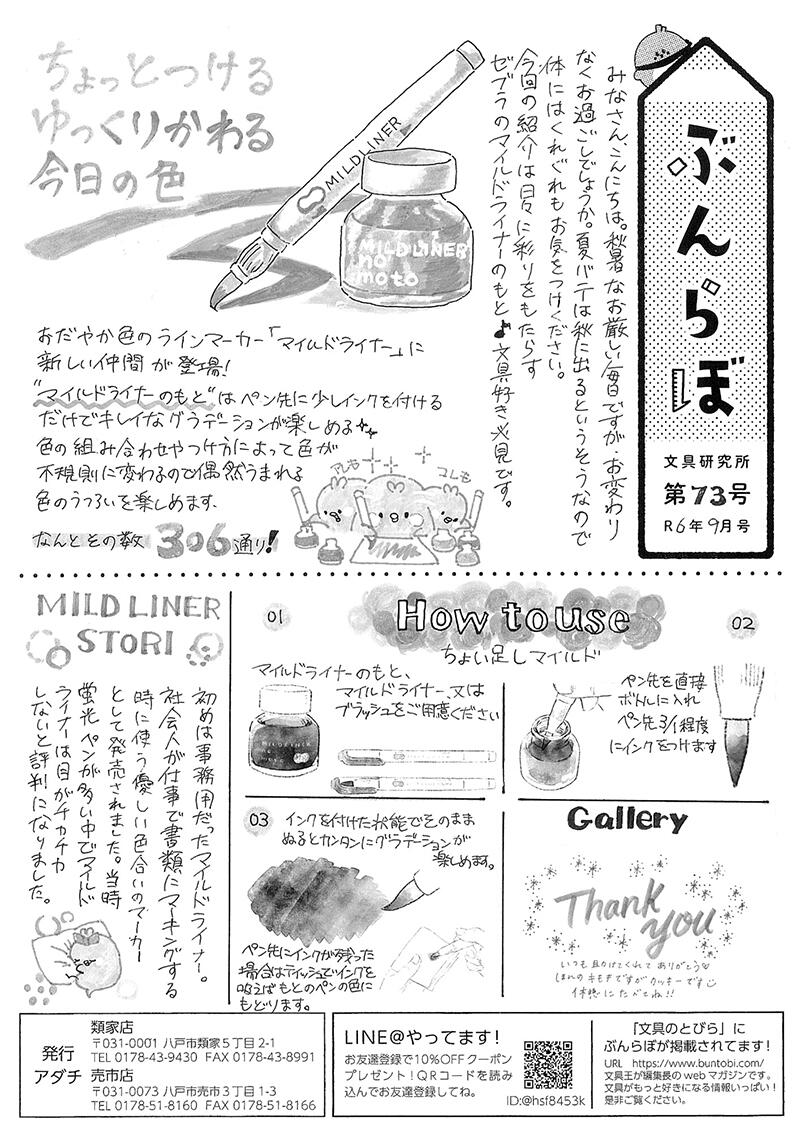 ぶんらぼ
文具研究所
第73号
R6年9月号
みなさんこんにちは。秋暑なお厳しい毎日ですが、お変わり
なくお過ごしでしょうか。夏バテは秋に出るというそうなので
体にはくれぐれもお気をつけください。
今回の紹介は日々に彩りをもたらす
ゼブラのマイルドライナーのもと♪文具好き必見です。
ちょっとつける
ゆっくりかわる
今日の色
MILDLINER
MILDLINER
no
moto
おだやか色のラインマーカー「マイルドライナー」に
新しい仲間が登場!
"マイルドライナーのもと"はペン先に少しインクを付ける
だけでキレイなグラデーションが楽しめる
色の組み合わせやつけ方によって色が
不規則に変わるので偶然うまれる
色のうつろいを楽しめます、
なんとその数 306通り!
アレも
コレも
MILD LINER
STORI
初めは事務用だったマイルドライナー。
社会人が仕事で書類にマーキングする
時に使う優しい色合いのマーカー
として発売されました。当時
蛍光ペンが多い中でマイルド
ライナーは目がチカチカ
しないと評判になりました。
How to use
ちょい足しマイルド
01
マイルドライナーのもと、
マイルドライナー、又は
ブラッシュをご用意ください
MILDLINER
02
ペン先を直接
ボトルに入れ
ペン先3/1程度
にインクをつけます
03
インクを付けた状態でそのまま
ぬるとカンタンにグラデーションが
楽しめます。
ペン先にインクが残った
場合はティッシュでインクを
吸えばもとのペンの色に
もどります。
Gallery
Thank
you
いつも助けてくれてありがとう
ほんのキモチですがクッキーです
休憩にたべてね!!
発行
アダチ
類家店
〒031-0001 八戸市類家5丁目2-1
TEL 0178-43-9430 FAX 0178-43-8991
売市店
〒031-0073 八戸市売市3丁目1-3
TEL 0178-51-8160 FAX 0178-51-8166
LINE@やってます!
お友達登録で10%OFFクーポン
プレゼント!QRコードを読み
込んでお友達登録してね。
ID:@hsf8453k
「文具のとびら」に
ぶんらぼが掲載されてます!
URL https://www.buntobi.com/
文具王が編集長のwebマガジンです。
文具がもっと好きになる情報いっぱい!
是非ご覧ください。